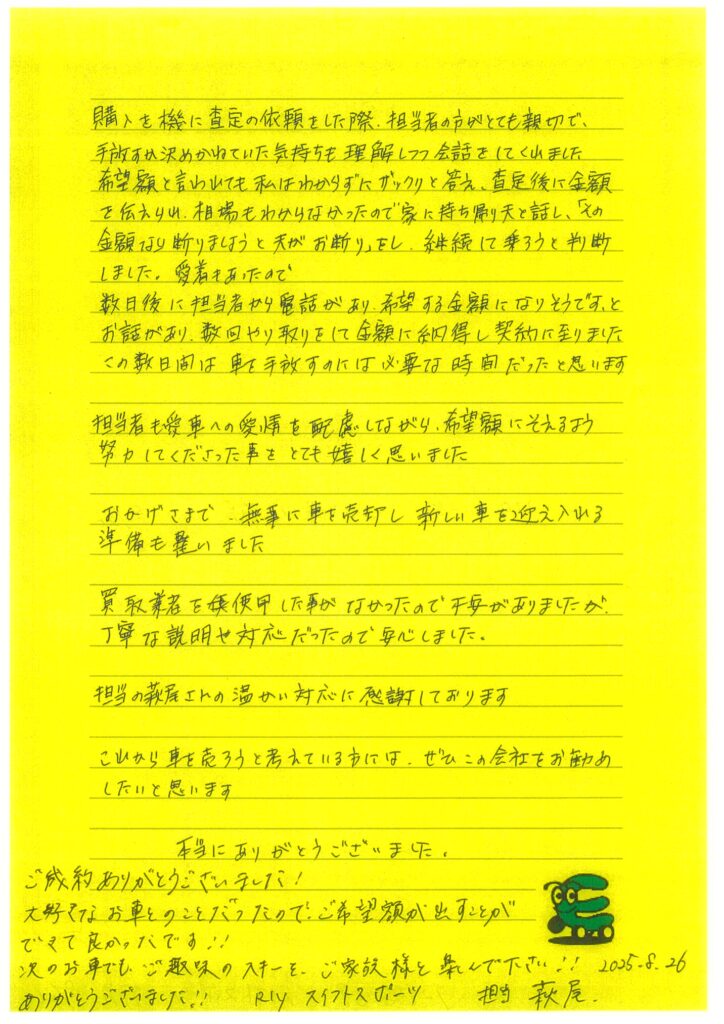 購入を機に査定の依頼をした際、担当者の方がとても親切で、
手放すか決めかねていた気持ちも理解しつつ会話をしてくれました
希望額と言われても私はわからずにザックリと答え、査定後に金額
を伝えられ、相場もわからなかったので家に持ち帰り夫と話し、「その
金額なら断りましょうと夫がお断り」をし、継続して乗ろうと判断
しました。愛着もあったので
数日後に担当者から電話があり、希望する金額になりそうです、と
お話があり、数回やり取りをして金額に納得し契約に至りました
この数日間は車を手放すのには必要な時間だったと思います
担当者も愛車への愛情を配慮しながら、希望額にそえるよう
努力してくださった事をとても嬉しく思いました
おかげさまで、無事に車を売却し新しい車を迎え入れる
準備も整いました
買取業者を使用した事がなかったので不安がありましたが、
丁寧な説明や対応だったので安心しました。
担当の萩尾さんの温かい対応に感謝しております
これから車を売ろうと考えている方には、ぜひこの会社をお勧め
したいと思います
本当にありがとうございました。
ご成約ありがとうございました!
大好きなお車とのことだったので、ご希望額が出すことが
できて良かったです!!
次のお車でも、ご趣味のスキーを、ご家族様と楽しんで下さい!! 2025.8.26
ありがとうございました!! R1y スイフトスポーツ 担当 萩尾.